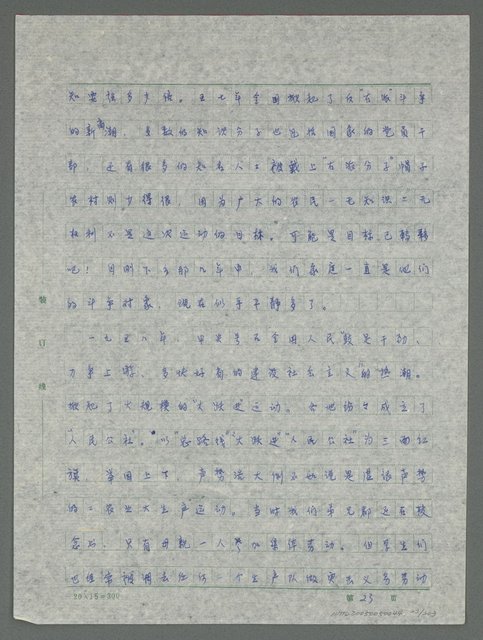 知要强多少倍。五七年全国掀起了反"右派"斗争
的新高潮，多数的知识分子也包括国家的党员干
部，还有很多的知名人士被戴上"右派分子"帽子
农村则少得很，因为广大的农民一无知识二无
权利不是这次运动的目标。可能是目标已转移
吧！自刚下乡那几年中，我们家庭一直是他们
的斗争对象，现在似乎平静多了。
一九五八年，中央号召全国人民"鼓足干劲、
力争上游、多快好省的建设社会主义"的热潮。
掀起了大规模的"大跃进"运动。各地纷纷成立了
"人民公社"。以"总路线""大跃进""人民公社"为三面红
旗，举国上下，声势浩大倒不如说是虚张声势
的工农业大生产运动。当时我们弟兄都还在被
念书，只有母亲一人参加集体劳动。但学生们
也经常被调去任何一个生产队做突击义务劳动
装
订
线
20×15=300
第 23 页